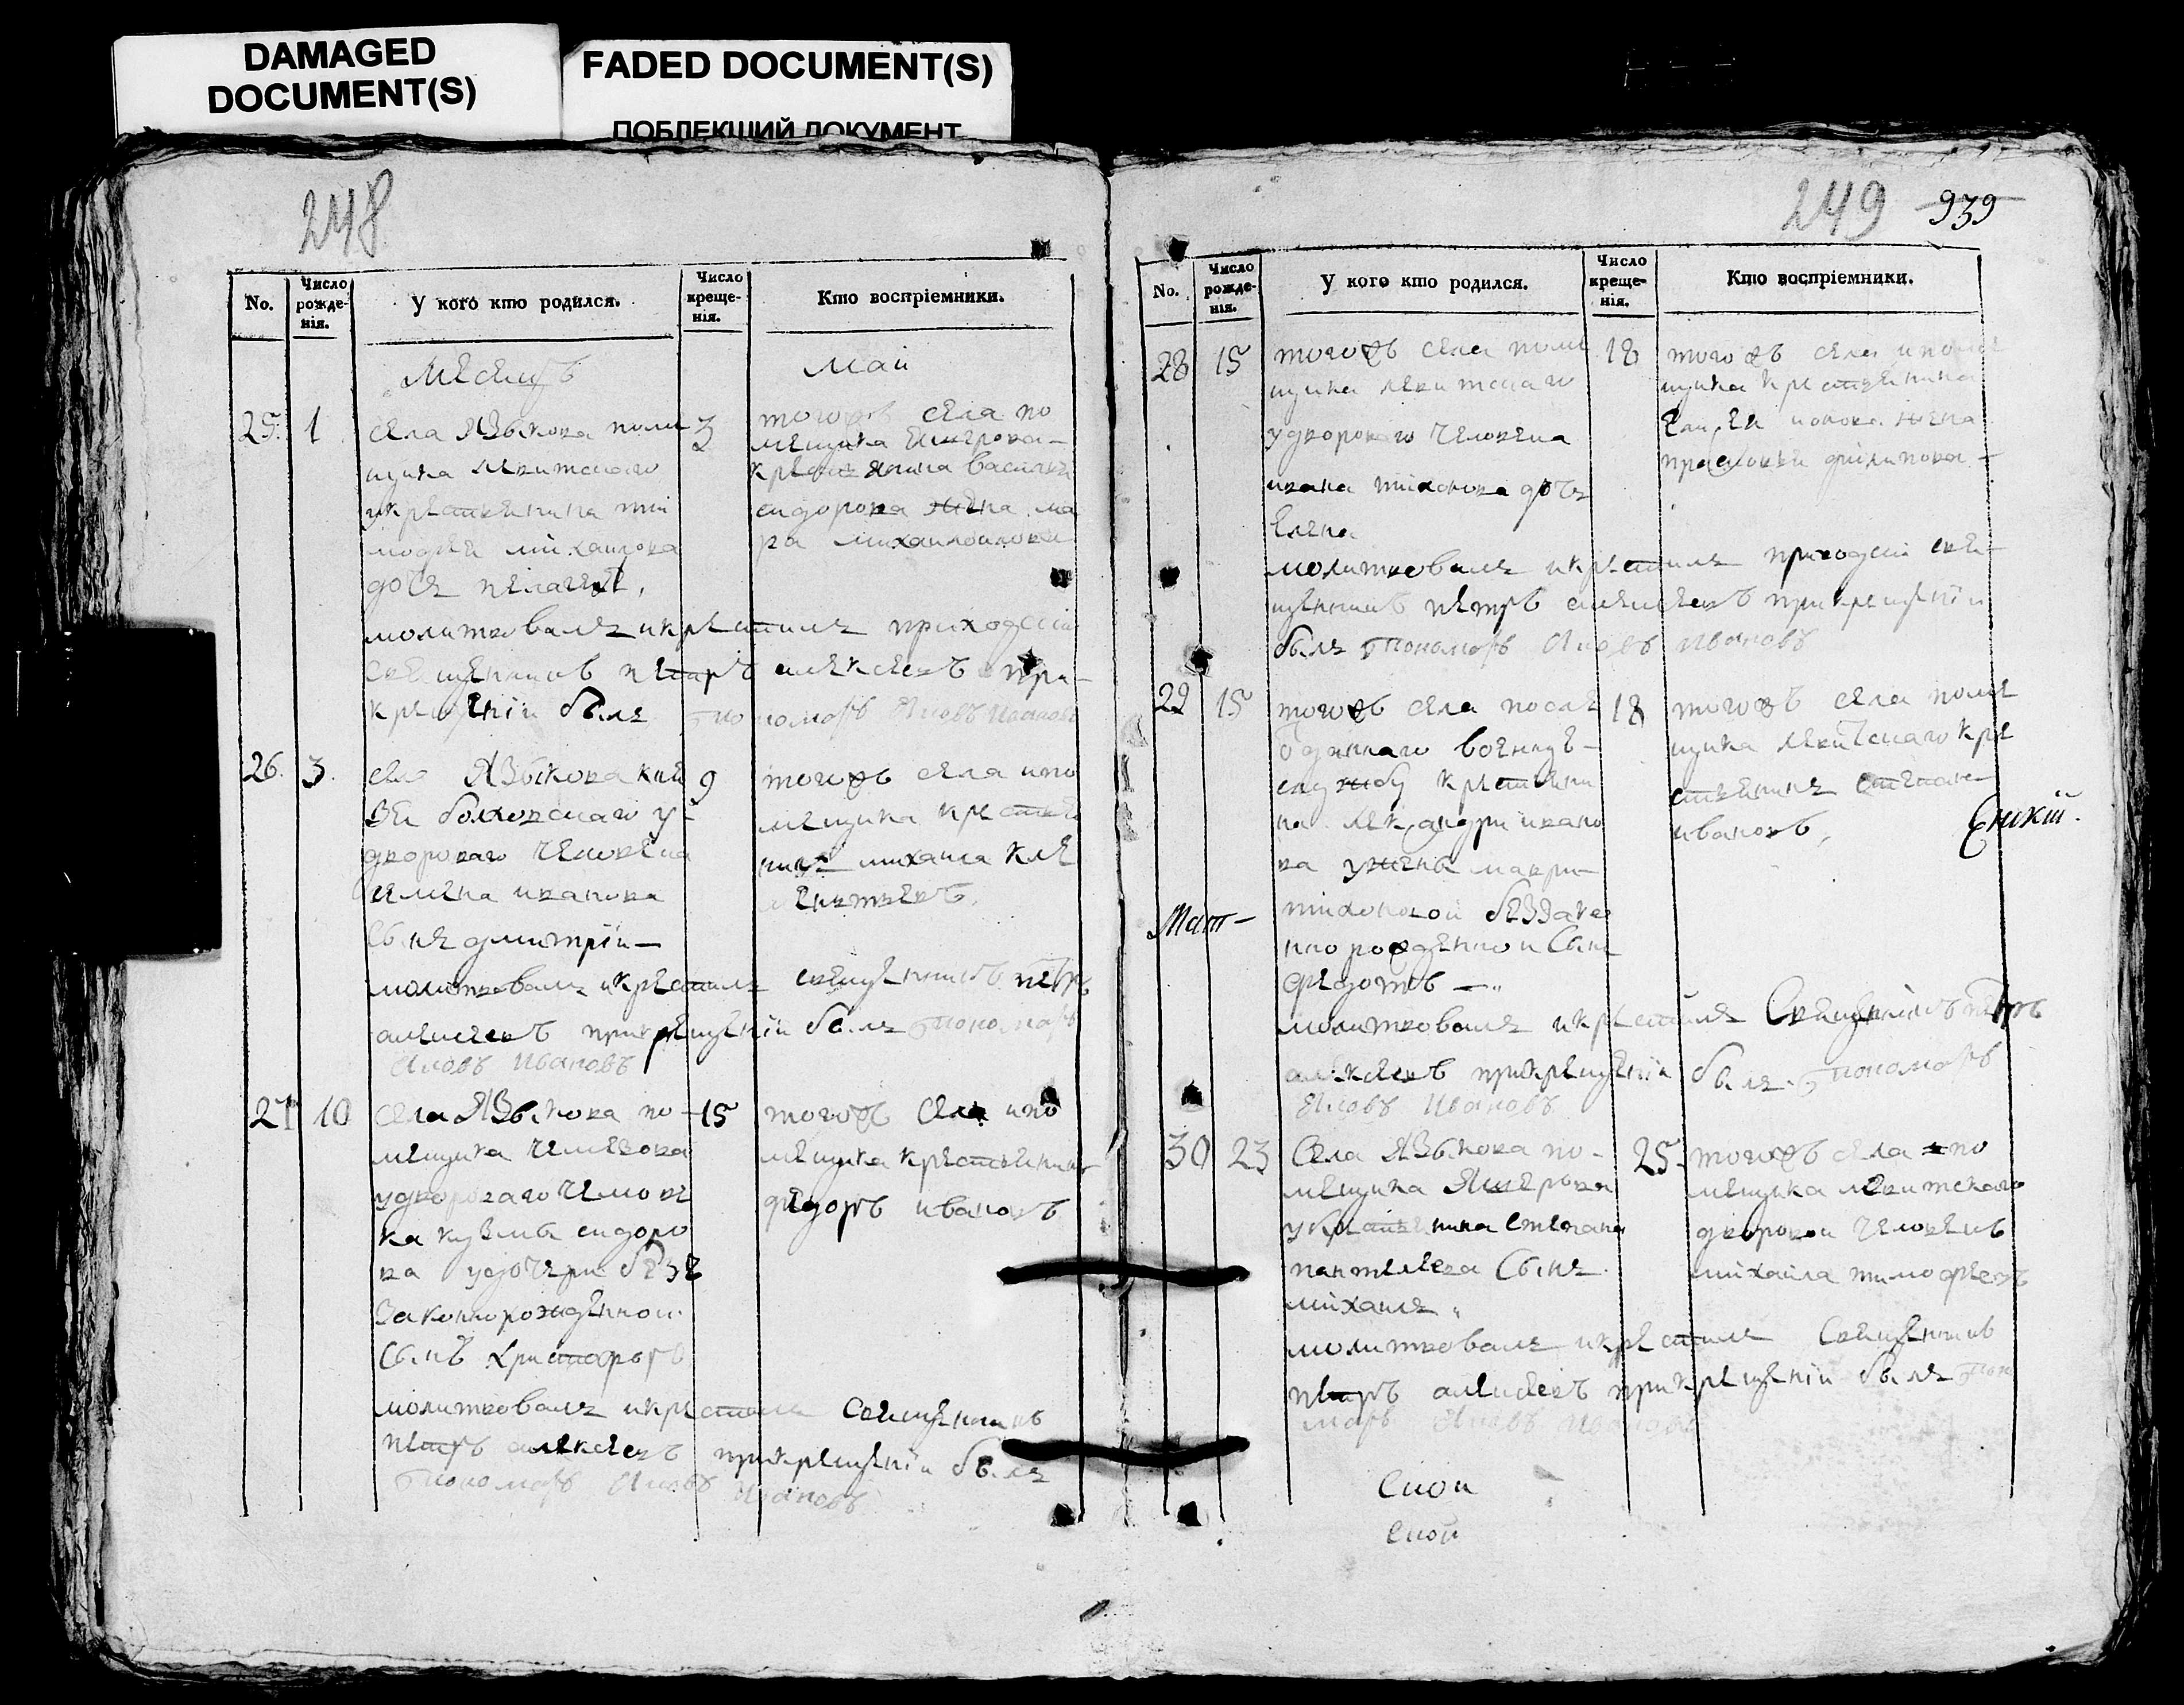 DAMAGED
DOCUMENT(S)
FADED DOCUMENT(S)
ПОБЛЕКШИЙ ДОКУМЕНТ
248
No.
Число рожде-нія.
У кого кто родился.
Число креще-нія.
Кто воспріемники.
Месяцъ
Май
25. 1
села Языкова поме
щика Левитскаго
укрестьянина тий
мофея михаилова
дочь пелагея,
3
тогожъ села по
мещика
крестьянина василья
сидорова жена ма
ра михаилова
молитвовалъ икрестилъ приходскій
священникъ петръ алексеевъ при
крещеніи былъ пономарь Яковъ Ивановъ
26. 3.
села Языкова кня
зя болховскаго у
двороваго человека
семена иванова
сынъ дмитрій
9
тогожъ села ипо
мещика кресть
михаила кле
ментьевъ.
молитвовалъ икрестилъ священникъ петръ
алексеевъ прикрещеніи былъ пономарь
Яковъ Ивановъ
27 10
села Языкова по
мещика
удвороваго челове
ка кузмы сидоро
ва удочери безъ
законнорожденной
сынъ христофоръ
15
тогожъ села ипо
мещика крестьянинъ
федоръ ивановъ
молитвовалъ икрестилъ священникъ
петръ алексеевъ прикрещеніи былъ
пономарь Яковъ Ивановъ
249 939
No.
Число рожде-нія.
У кого кто родился.
Число креще-нія.
Кто воспріемники.
28 15
тогожъ села поме
щика левитскаго
удвороваго человека
ивана тихонова дочь
елена
18
тогожъ села ипоме
щика крестьянина
жена
филипова
молитвовалъ икрестилъ приходскій свя
щенникъ петръ алексеевъ прикрещеніи
былъ пономарь Яковъ Ивановъ
29 15
тогожъ села после
отданнаго военную
службу крестьяни
на иванова
ва ужены маври
тихоновой беззако
нно рожденной сынъ
федотъ
18
тогожъ села поме
щика левитскаго кре
стьянинъ степанъ
ивановъ,
молитвовалъ икрестилъ Священникъ петръ
алексеевъ прикрещеніи былъ пономарь
Яковъ Ивановъ
30 23
Села Языкова по-
мещика
укрестьянина степана
пантелеева сынъ
михаилъ
25.
тогожъ села по
мещика левитскаго
дворовой человекъ
михаила тимофеевъ
молитвовалъ икрестилъ Священникъ
петръ алексеевъ прикрещеніи былъ поно
марь Яковъ Ивановъ